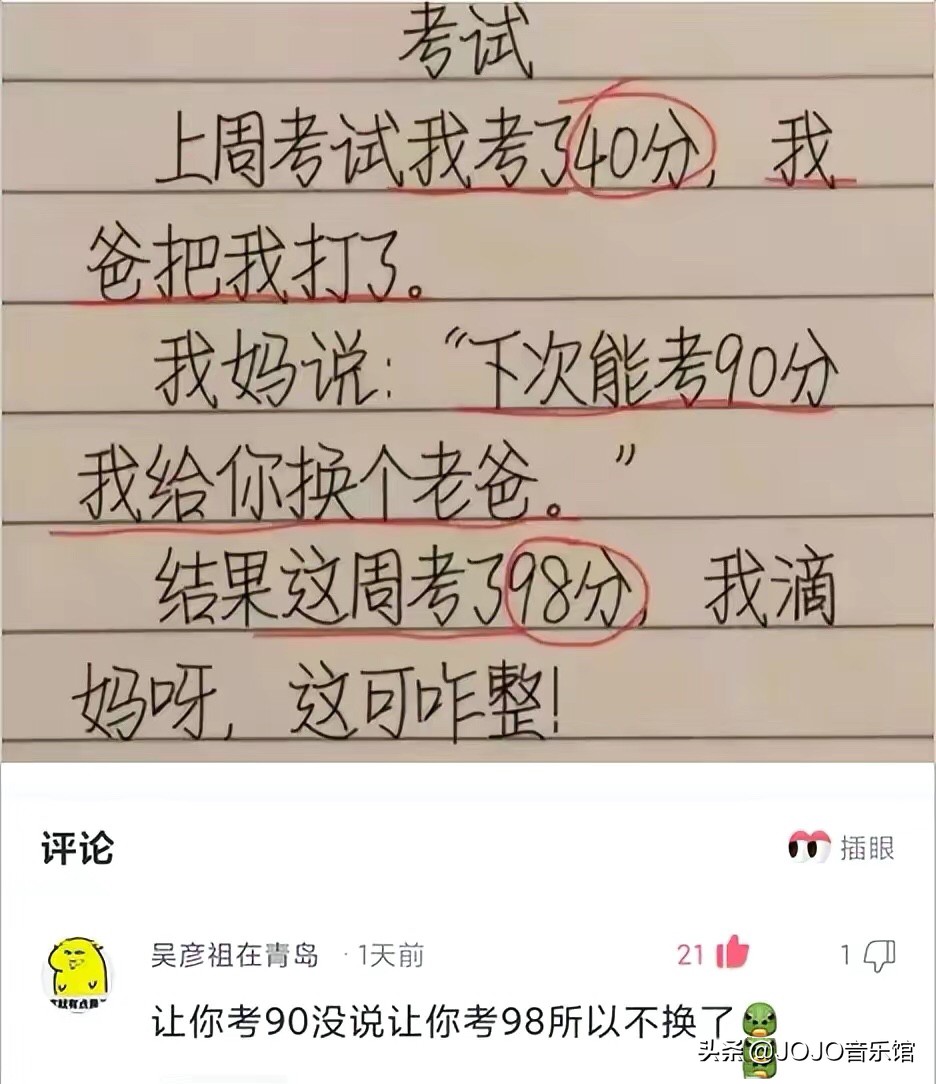 考试
上周考试我考了40分，我
爸把我打了。
我妈说：“下次能考90分
我给你换个老爸。”
结果这周考了98分，我滴
妈呀，这可咋整！
评论
插眼
吴彦祖在青岛 · 1天前
21
1
让你考90没说让你考98所以不换了
头条 @JOJO音乐馆